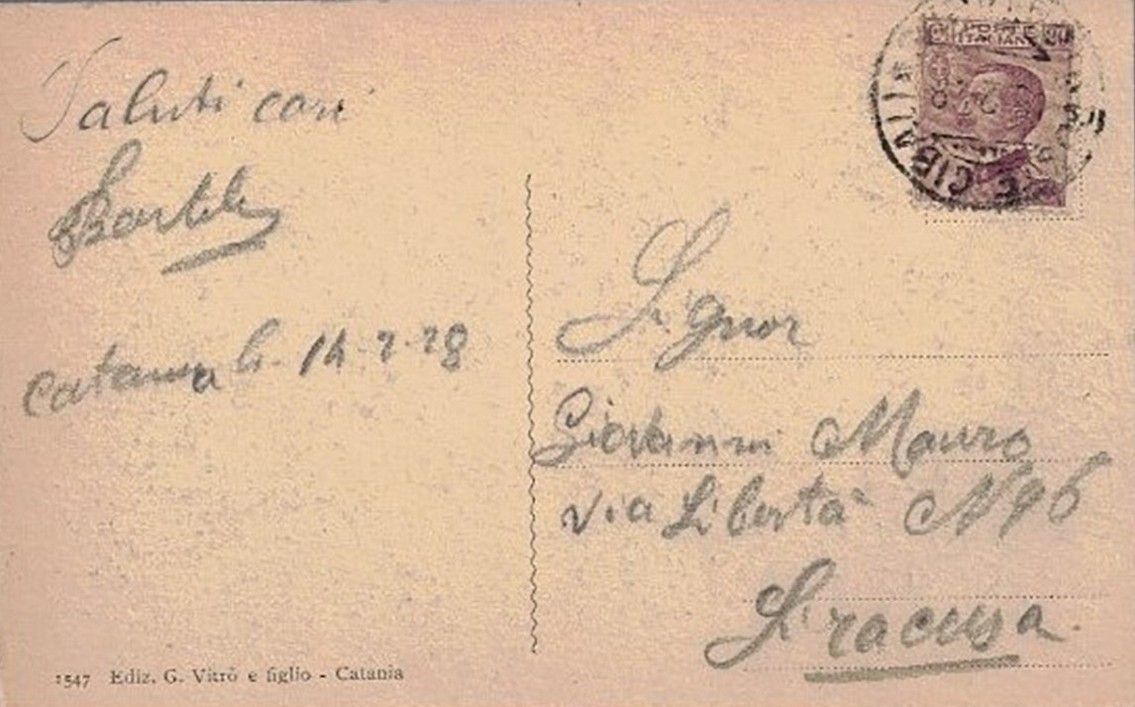 Saluti cari
Catania li 14-2-28
1547 Ediz. G. Vitrò e figlio - Catania
ITALIANE
CIBALI
Signor
Giovanni Mauro
Via Libertà N 96
Siracusa